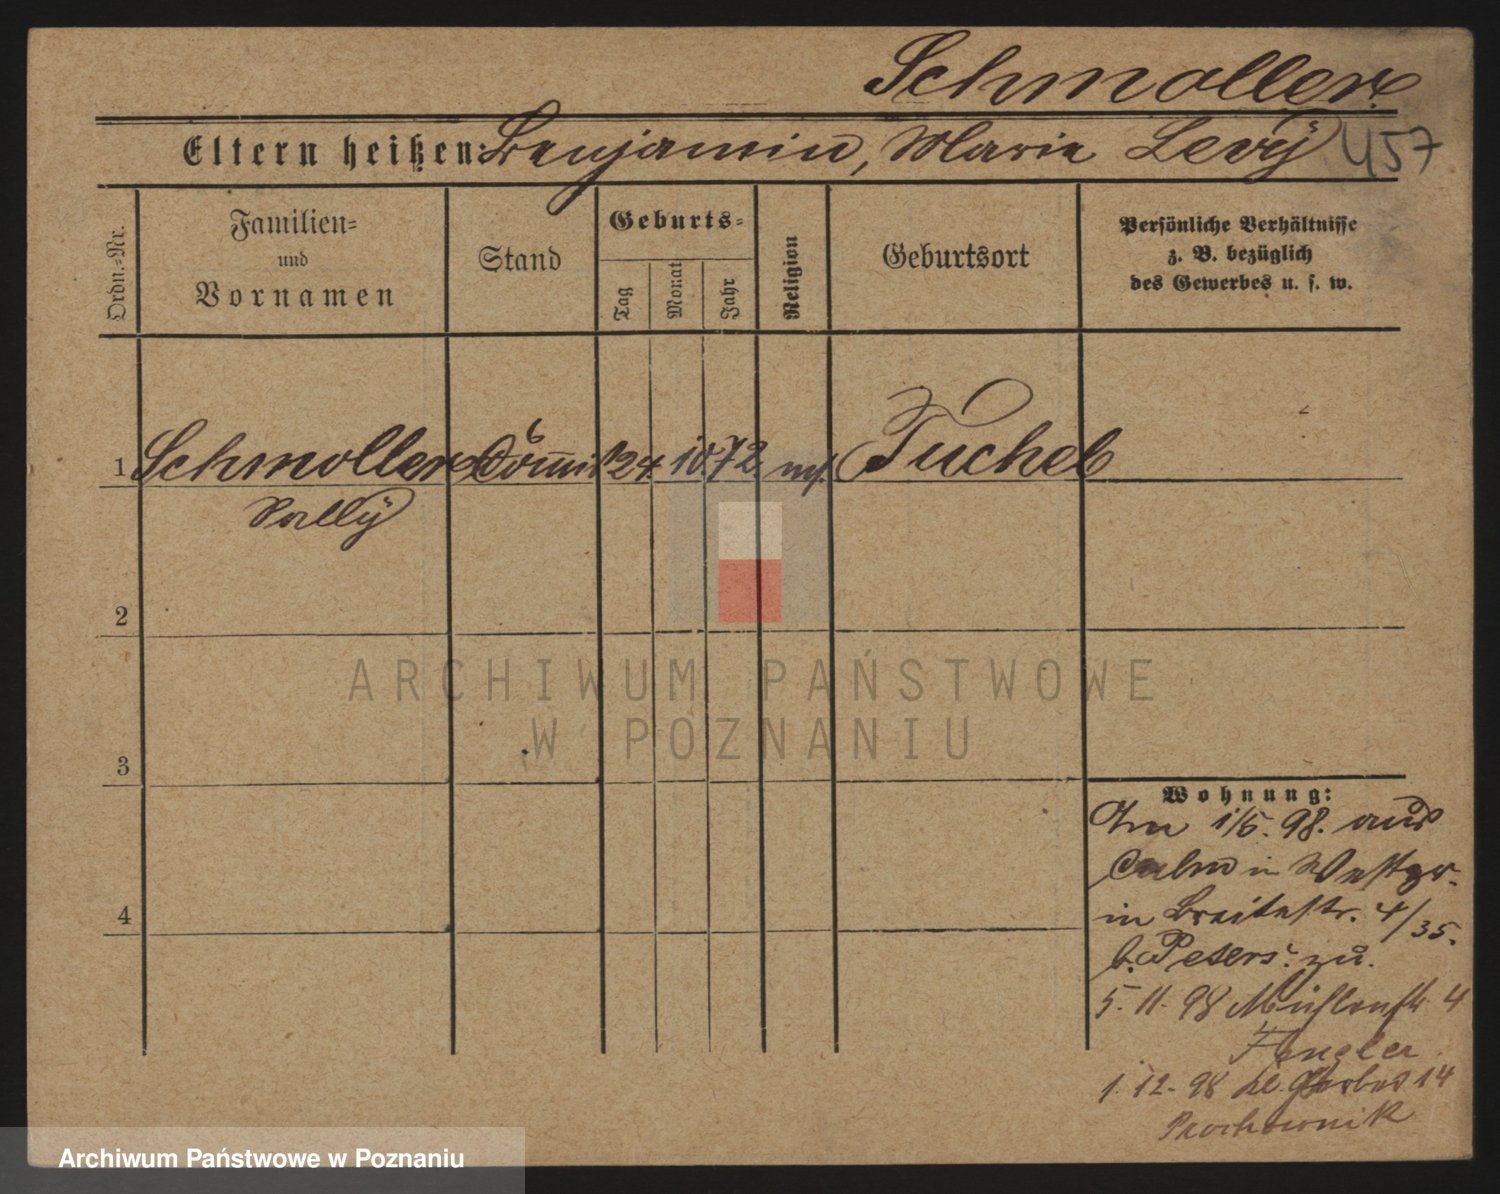 Schmoller
Eltern heißen: Benjamin, Marie Levÿ 457
Ordn.-Nr.
Familien-
und
Vornamen
Stand
Geburts-
Tag
Monat
Jahr
Religion
Geburtsort
Persönliche Verhältnisse
z. B. bezüglich
des Gewerbes u. s. w.
1 Schmoller Commis 24. 10. 72. mos. Tuchel
Sally
2
3
4
Wohnung:
Am 1/5. 98. aus
Culm in Westpr.
in Breitestr. 4/35.
b. Peters zu.
5. 11. 98 Mühlenstr. 4
1. 12. 98 kl. Gerber 14
Prochownik
ARCHIWUM PAŃSTWOWE
W POZNANIU
Archiwum Państwowe w Poznaniu